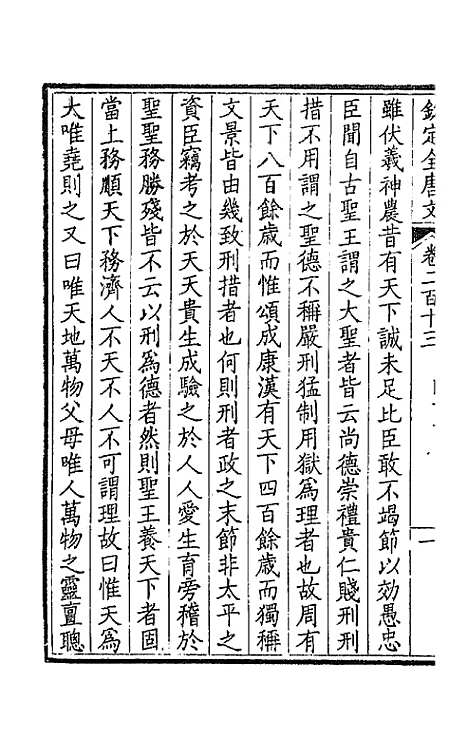 欽定全唐文 卷二百十三
一
雖伏羲神農昔有天下誠未足比臣敢不竭節以効愚忠
臣聞自古聖王謂之大聖者皆云尚德崇禮貴仁賤刑刑
措不用謂之聖德不稱嚴刑猛制用獄為理者也故周有
天下八百餘歳而惟頌成康漢有天下四百餘歳而獨稱
文景皆由幾致刑措者也何則刑者政之末節非太平之
資臣竊考之於天天貴生成驗之於人人愛生育旁稽於
聖聖務勝殘皆不云以刑為德者然則聖王養天下者固
當上務順天下務濟人不天不人不可謂理故曰惟天為
大唯堯則之又曰唯天地萬物父母唯人萬物之靈亶聰